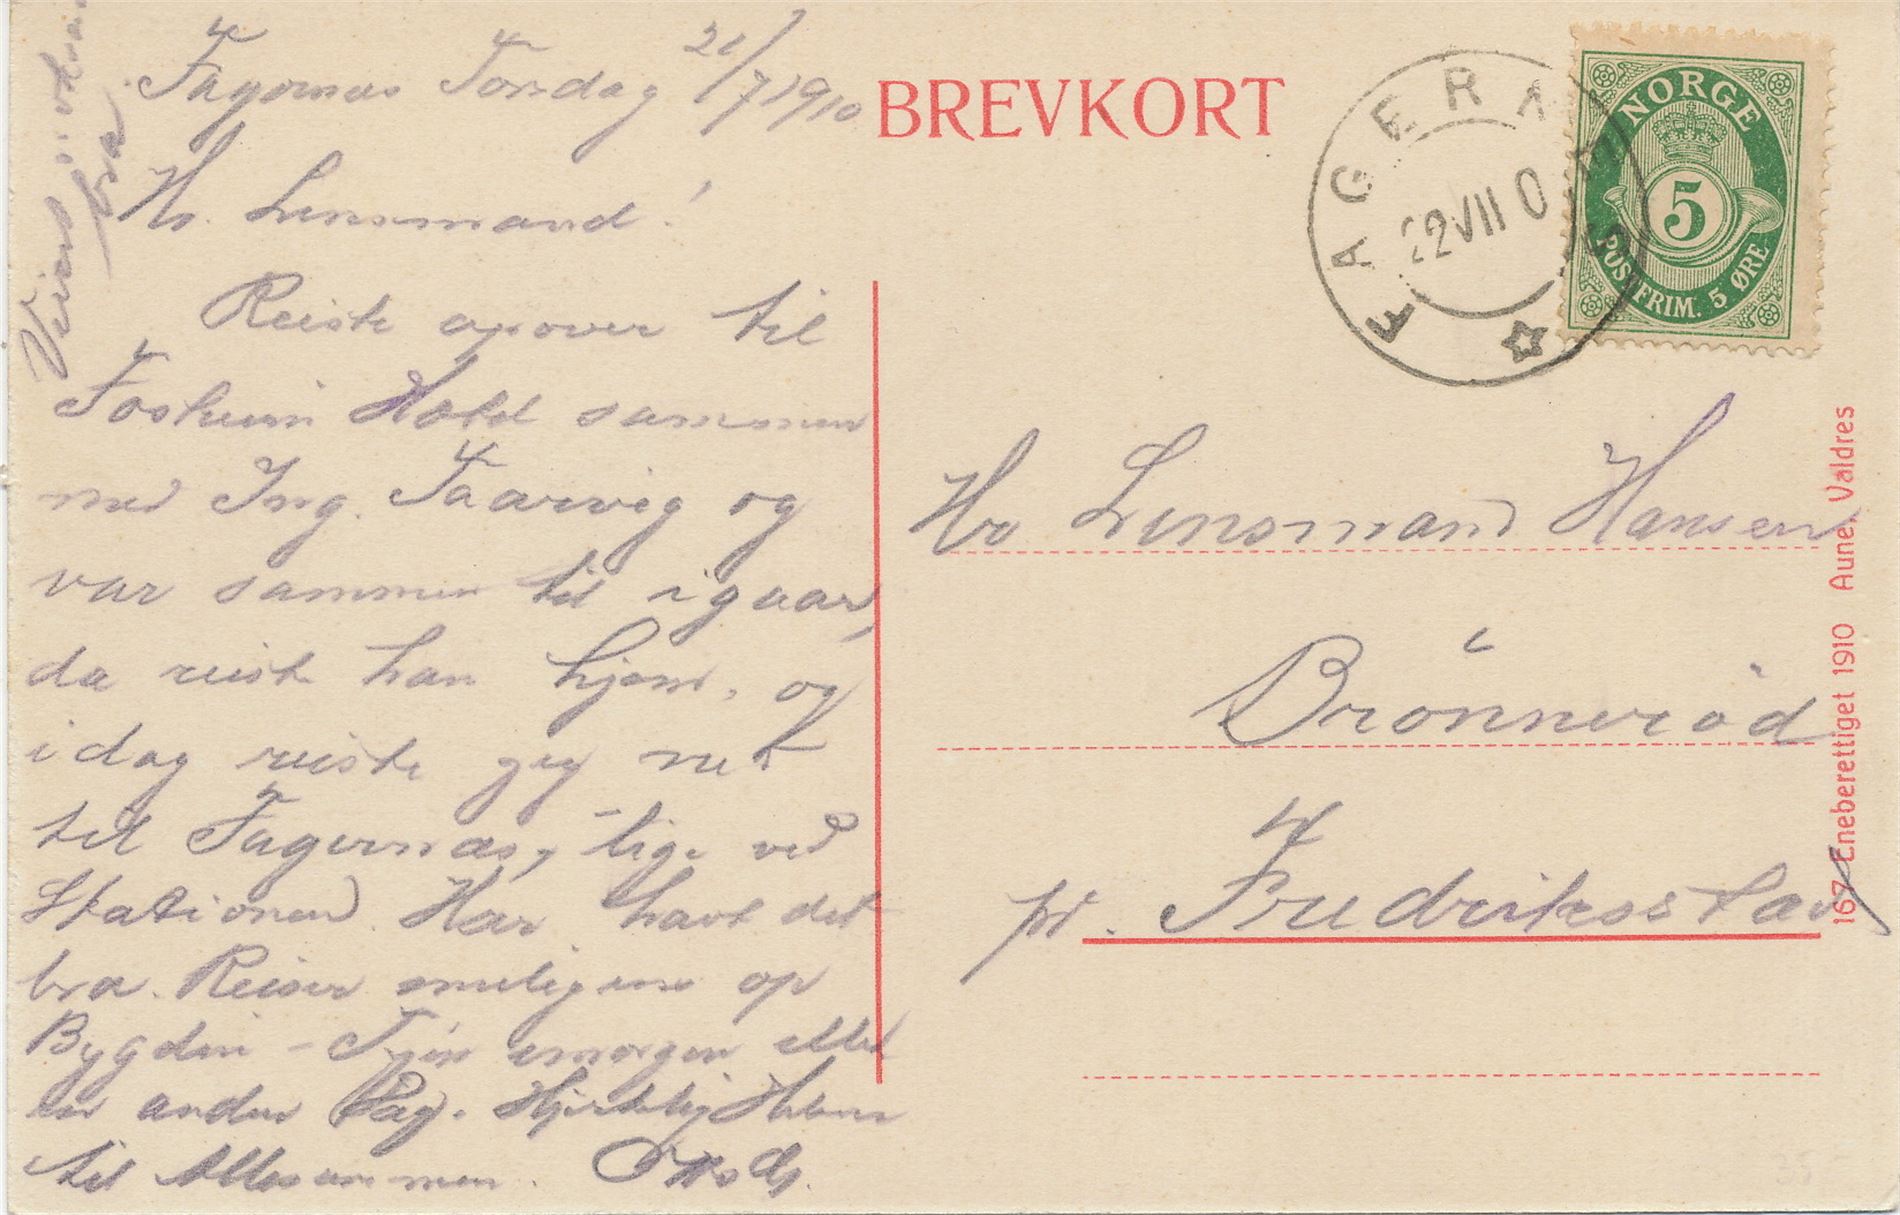 Fagernæs Torsdag 21/7 1910
Hr. Lensmand!
Reiste opover til
Fosheim Hotel sammen
med Ing. Taarvig og
var sammen til igaar,
da reiste han hjem, og
idag reiste jeg ned
til Fagernæs, lige ved
Stationen. Har havt det
bra. Reiser muligens op
Bygdin - Tyin imorgen eller
en anden Dag. Hjertelig Hilsen
til Allesammen. Otto G.
BREVKORT
FAGERN
22 VII 0
NORGE
5
POSTFRIM. 5 ØRE
Hr Lensmand Hansen
Brønnerød
pr. Fredriksstad
167 Eneberettiget 1910 Aune, Valdres
35